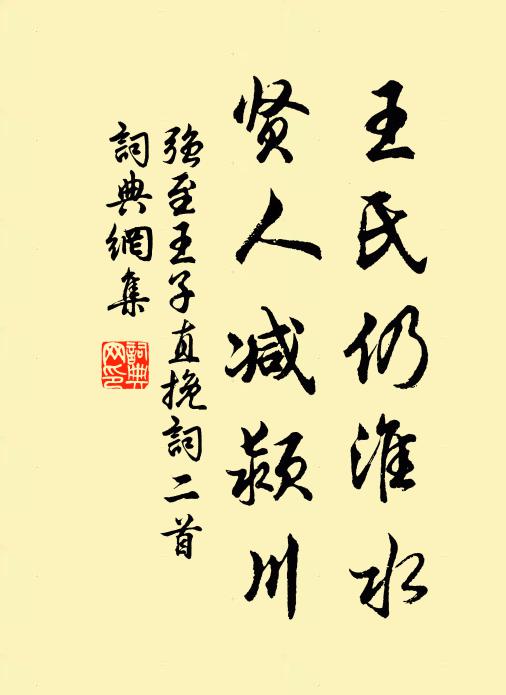 王氏仍淮水
贤人减颍川
强至王子直挽词二首
詞典網集
詞典
网印